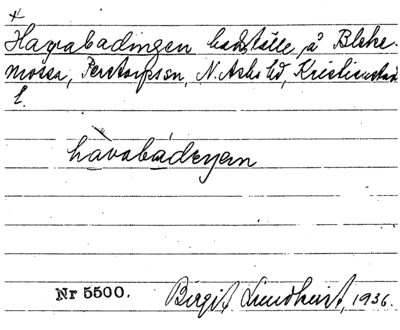 ×
Havabadingen badställe å Bleke-
mossa, Perstorpssn, N. Åsbo hd, Kristianstad
l.
havabadeyem
Nr 5500. Birgit Lundkvist, 1936.